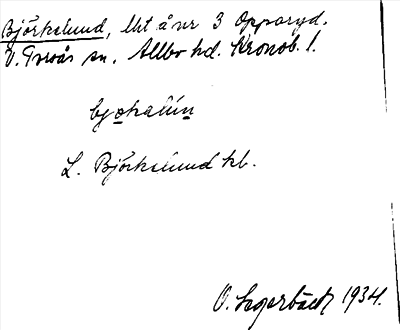 Björkelund, lht å nr 3 Opparyd.
V. Torsås sn. Allbo hd. Kronob. l.
bjo̲kalún̲
L. Björkelund hb.
O. Lagerbäck 1934.